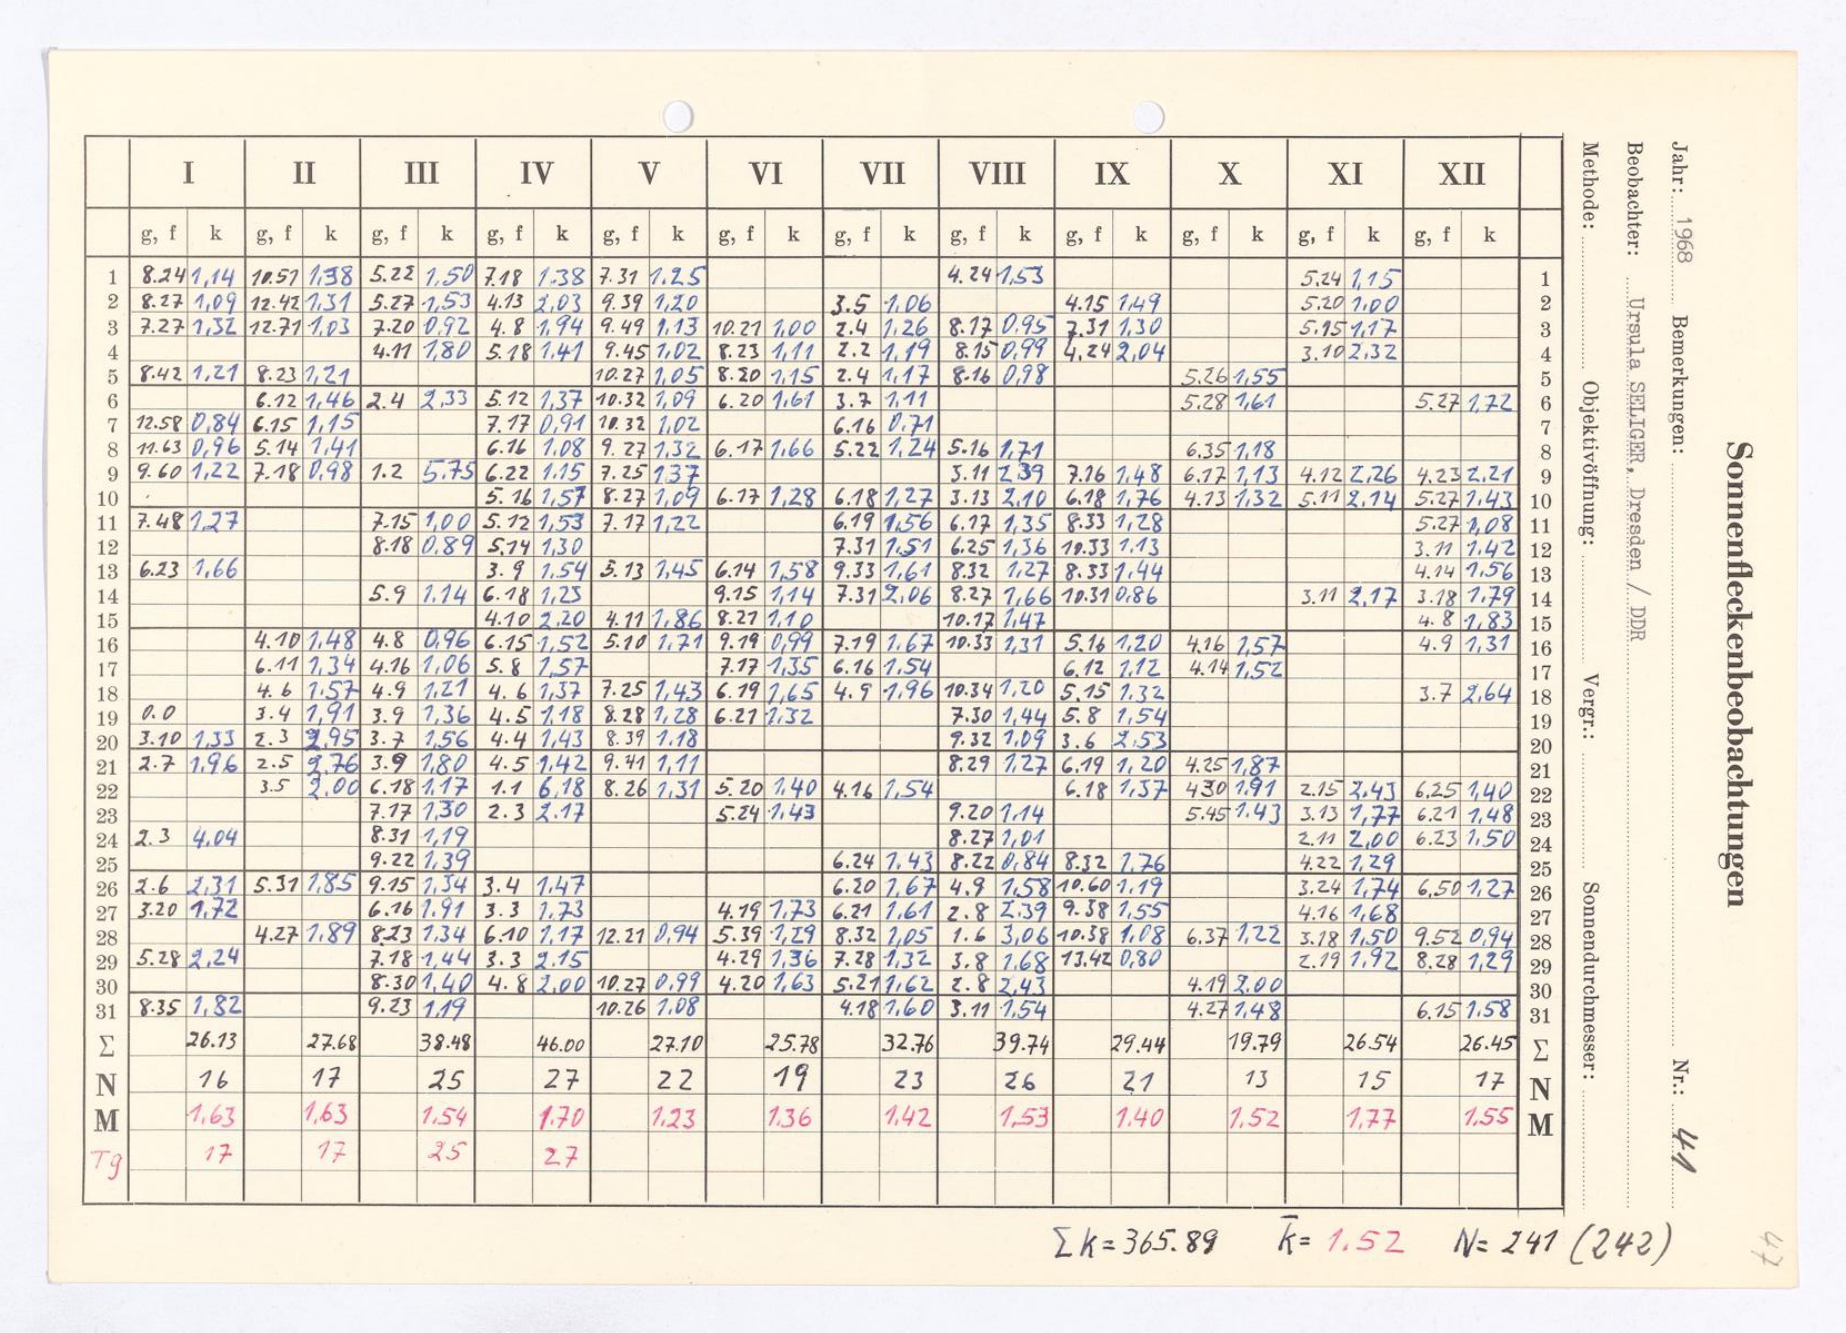 Sonnenfleckenbeobachtungen
Jahr: 1968 Bemerkungen: Nr.: 41
Beobachter: Ursula SELIGER, Dresden / DDR
Methode: Objektivöffnung: Vergr.: Sonnendurchmesser:
I II III IV V VI VII VIII IX X XI XII
g, f k g, f k g, f k g, f k g, f k g, f k g, f k g, f k g, f k g, f k g, f k g, f k
1 8.24 1,14 10.51 1,38 5.22 1,50 7.18 1.38 7.31 1.25 4.24 1,53 5.24 1,15 1
2 8.27 1,09 12.42 1,31 5.27 1,53 4.13 2,03 9.39 1,20 3.5 1,06 4.15 1,49 5.20 1,00 2
3 7.27 1,32 12.71 1,03 7.20 0,92 4.8 1,94 9.49 1,13 10.21 1,00 2.4 1,26 8.17 0,95 7.31 1,30 5.15 1,17 3
4 4.11 1,80 5.18 1,41 9.45 1,02 8.23 1,11 2.2 1,19 8.15 0,99 4.24 2,04 3.10 2,32 4
5 8.42 1,21 8.23 1,21 10.27 1,05 8.20 1,15 2.4 1,17 8.16 0,98 5.26 1,55 5
6 6.12 1,46 2.4 2,33 5.12 1,37 10.32 1,09 6.20 1,61 3.7 1,11 5.28 1,61 5.27 1,72 6
7 12.58 0,84 6.15 1,15 7.17 0,91 10.32 1,02 6.16 0,71 7
8 11.63 0,96 5.14 1,41 6.16 1,08 9.27 1,32 6.17 1,66 5.22 1,24 5.16 1,71 6.35 1,18 8
9 9.60 1,22 7.18 0,98 1.2 5.75 6.22 1.15 7.25 1,37 3.11 2,39 7.16 1,48 6.17 1,13 4.12 2,26 4.23 2,21 9
10 5.16 1,57 8.27 1,09 6.17 1,28 6.18 1,27 3.13 2,10 6.18 1,76 4.13 1,32 5.11 2,14 5.27 1,43 10
11 7.48 1,27 7.15 1,00 5.12 1,53 7.17 1,22 6.19 1,56 6.17 1,35 8.33 1,28 5.27 1,08 11
12 8.18 0,89 5.14 1,30 7.31 1,51 6.25 1,36 10.33 1,13 3.11 1,42 12
13 6.23 1,66 3.9 1,54 5.13 1,45 6.14 1,58 9.33 1,61 8.32 1,27 8.33 1,44 4.14 1,56 13
14 5.9 1.14 6.18 1,23 9.15 1,14 7.31 2,06 8.27 1,66 10.31 0,86 3.11 2,17 3.18 1,79 14
15 4.10 2,20 4.11 1,86 8.21 1,10 10.17 1,47 4.8 1,83 15
16 4.10 1,48 4.8 0,96 6.15 1,52 5.10 1,71 9.19 0,99 7.19 1,67 10.33 1,31 5.16 1,20 4.16 1,57 4.9 1,31 16
17 6.11 1,34 4.16 1,06 5.8 1,57 7.17 1,35 6.16 1,54 6.12 1,12 4.14 1,52 17
18 4.6 1.57 4.9 1,21 4.6 1,37 7.25 1,43 6.19 1,65 4.9 1,96 10.34 1,20 5.15 1,32 3.7 2,64 18
19 0.0 3.4 1,91 3.9 1,36 4.5 1,18 8.28 1,28 6.21 1,32 7.30 1,44 5.8 1,54 19
20 3.10 1,33 2.3 2,95 3.7 1,56 4.4 1,43 8.39 1.18 9.32 1,09 3.6 2,53 20
21 2.7 1,96 2.5 2,76 3.9 1,80 4.5 1,42 9.41 1,11 8.29 1,27 6.19 1,20 4.25 1,87 21
22 3.5 2,00 6.18 1,17 1.1 6,18 8.26 1,31 5.20 1,40 4.16 1,54 6.18 1,37 4.30 1,91 2.15 2,43 6.25 1,40 22
23 7.17 1,30 2.3 2.17 5.24 1,43 9.20 1,14 5.45 1.43 3.13 1,77 6.21 1,48 23
24 2.3 4,04 8.31 1,19 8.27 1,01 2.11 2,00 6.23 1,50 24
25 9.22 1,39 6.24 1,43 8.22 0,84 8.32 1,76 4.22 1,29 25
26 2.6 2,31 5.31 1,85 9.15 1,34 3.4 1,47 6.20 1,67 4.9 1,58 10.60 1,19 3.24 1,74 6,50 1,27 26
27 3.20 1,72 6.16 1,91 3.3 1,73 4.19 1,73 6.21 1,61 2.8 2,39 9.38 1,55 4.16 1,68 27
28 4.27 1,89 8.23 1,34 6.10 1,17 12.21 0,94 5.39 1,29 8.32 1,05 1.6 3,06 10.38 1,08 6.37 1,22 3.18 1,50 9.52 0,94 28
29 5.28 2,24 7.18 1,44 3.3 2.15 4.29 1,36 7.28 1,32 3.8 1,68 13.42 0,80 2.19 1,92 8.28 1,29 29
30 8.30 1,40 4.8 2,00 10.27 0,99 4.20 1,63 5.21 1,62 2.8 2,43 4.19 2,00 30
31 8.35 1,82 9.23 1,19 10.26 1,08 4.18 1,60 3.11 1,54 4.27 1,48 6.15 1,58 31
Σ 26.13 27.68 38.48 46.00 27.10 25.78 32.76 39.74 29.44 19.79 26.54 26.45 Σ
N 16 17 25 27 22 19 23 26 21 13 15 17 N
M 1,63 1,63 1,54 1.70 1,23 1.36 1,42 1,53 1.40 1,52 1,77 1,55 M
Tg 17 17 25 27
Σ k = 365.89 k̄ = 1.52 N = 241 (242)
47